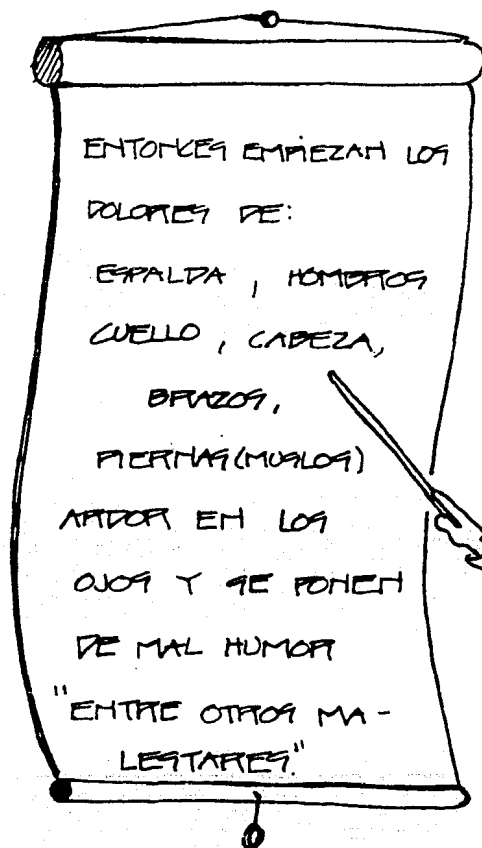 ENTONCES EMPIEZAN LOS
DOLORES DE:
ESPALDA, HOMBROS
CUELLO, CABEZA,
BRAZOS,
PIERNAS (MUSLOS)
ARDOR EN LOS
OJOS Y SE PONEN
DE MAL HUMOR
"ENTRE OTROS MA-
LESTARES."